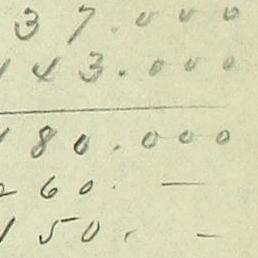 37.000
143.000
180.000
260. —
150. –